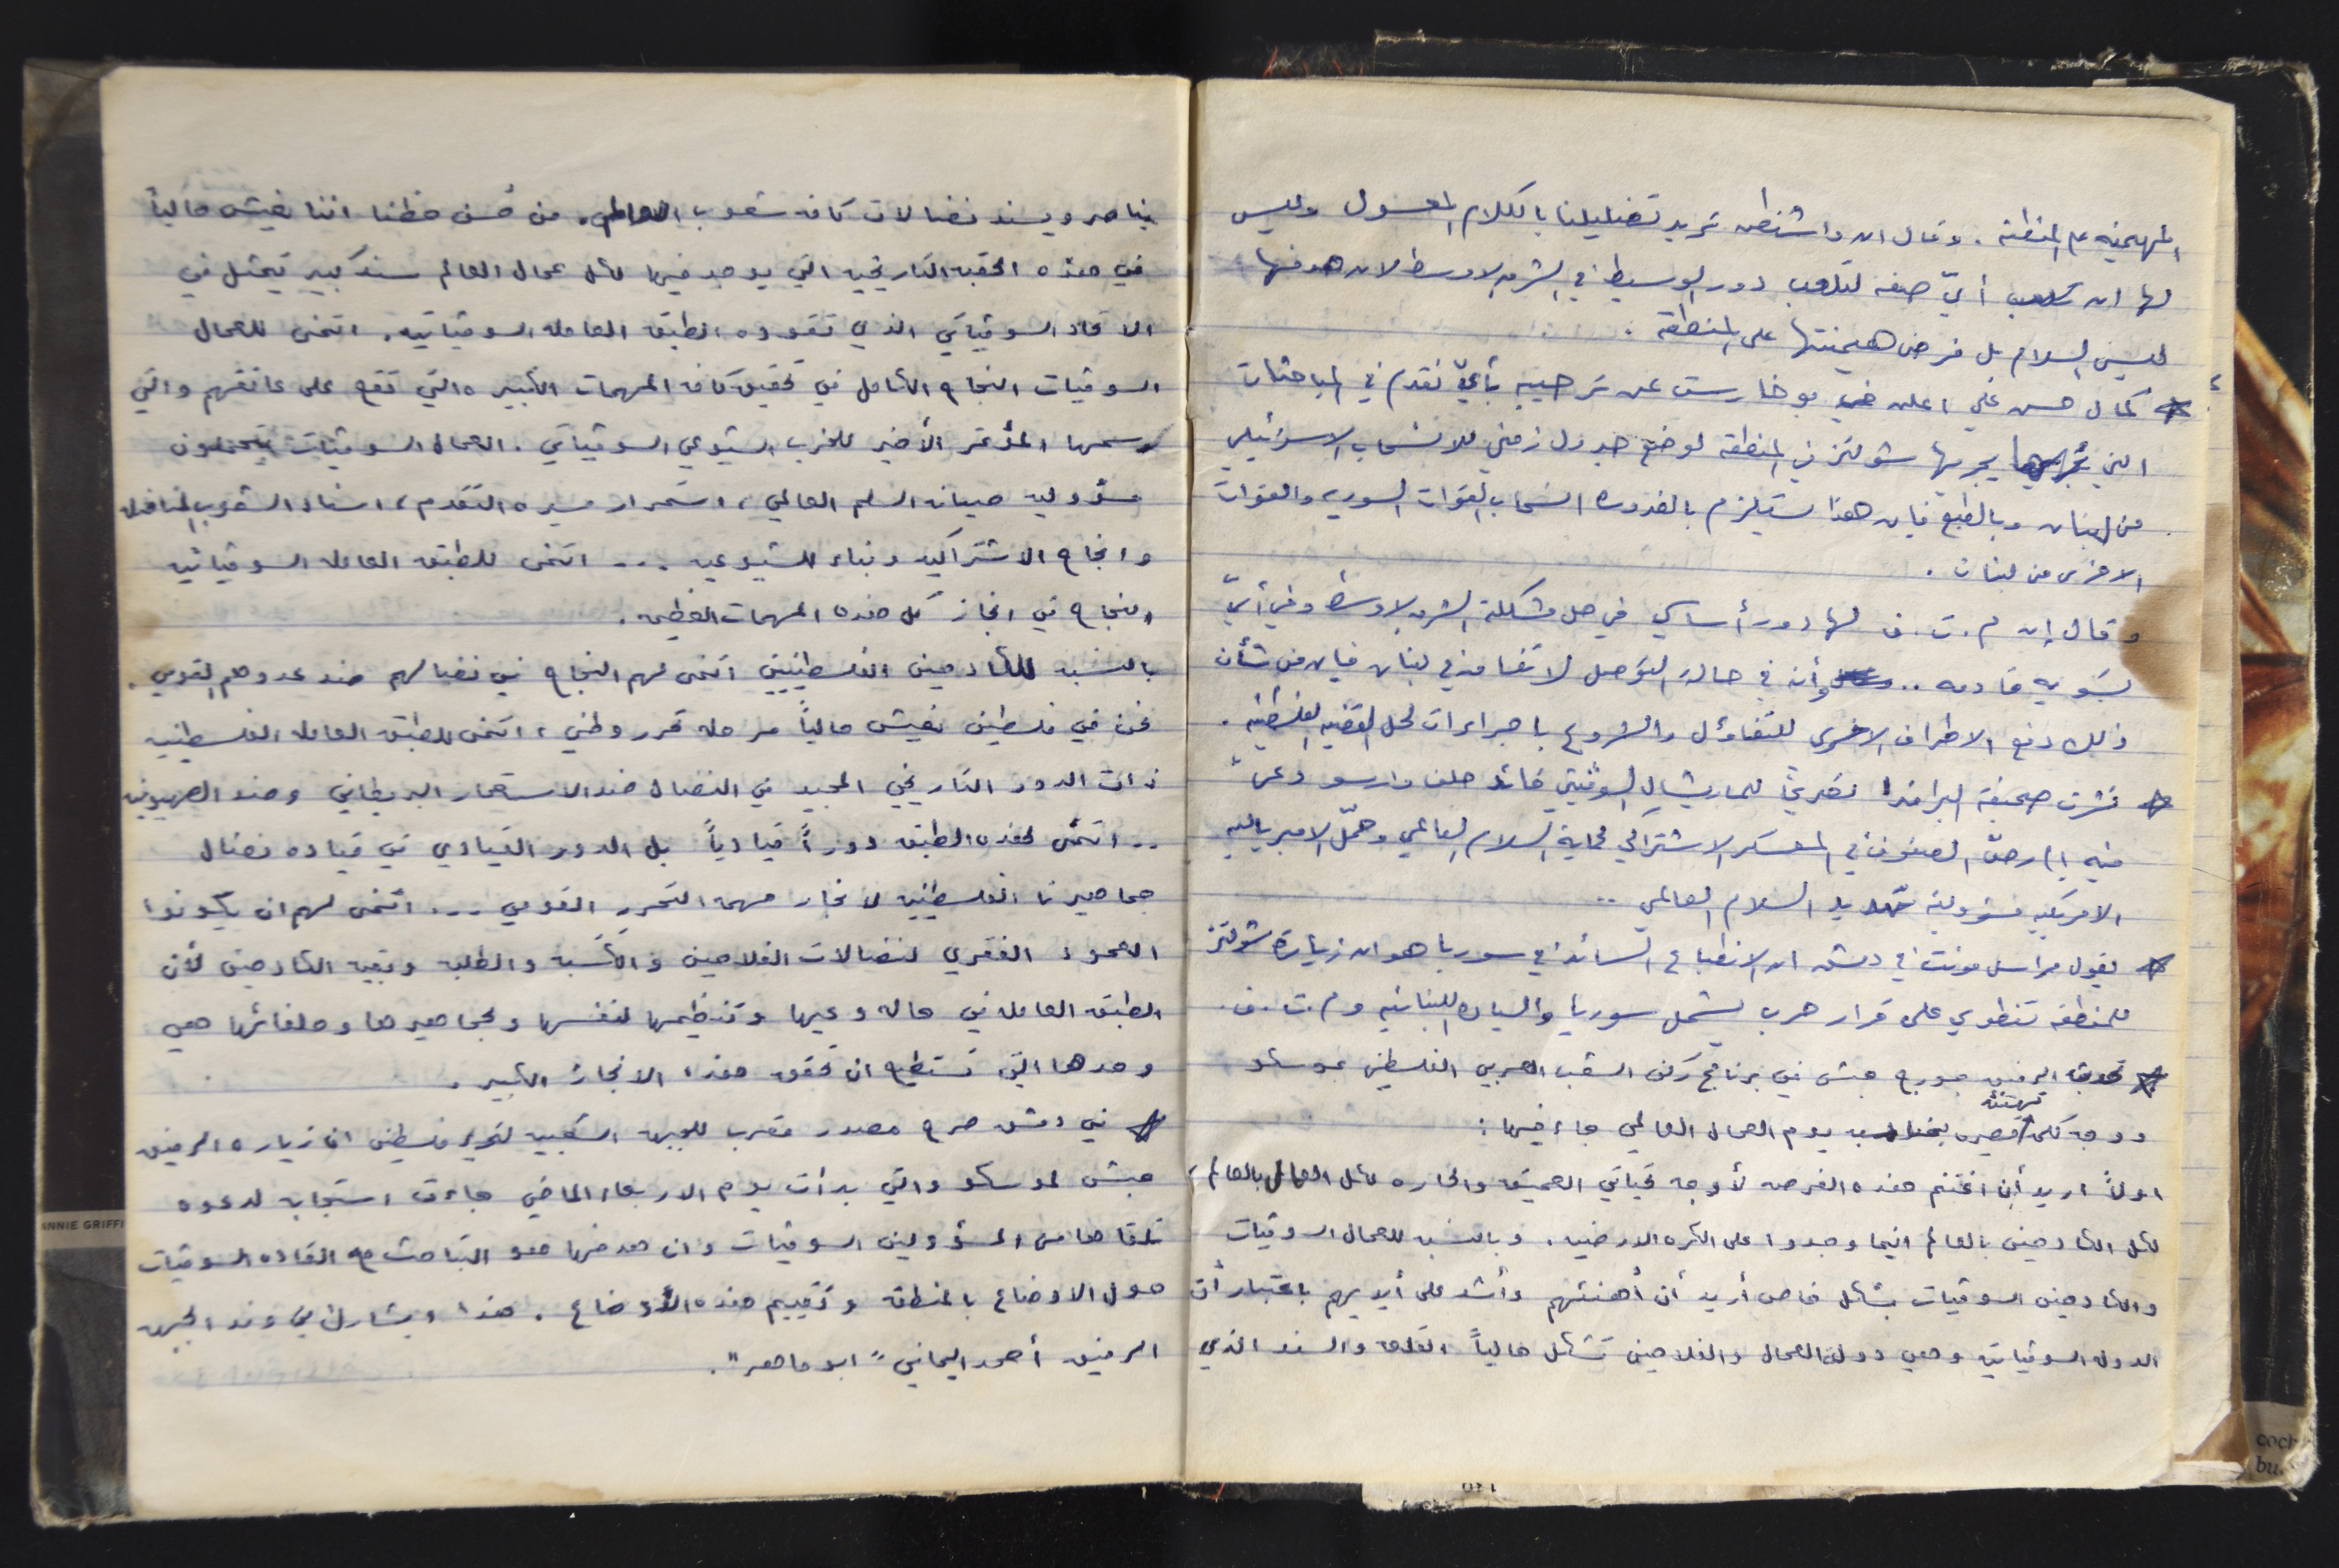 المهيمنه على المنطقة. وقال ان واشنطن تريد تضليلنا بالكلام المعسول وليس
لها ان تلعب أيّ صفه لتلعب دور الوسيط في الشرق الاوسط لان هدفها
ليس السلام بل فرض هيمنتها على المنطقة.
* كمال حسن علي اعلن في بوخارست عن ترحيبه بأيّ تقدم في المباحثات
التي يجريها شولتز في المنطقة لوضع جدول زمني للانسحاب الاسرائيلي
من لبنان وبالطبع فإن هذا سيتلزم بالضروره انسحاب القوات السوريه والقوات
الاخرى من لبنان.
وقال إن م.ت.ف لها دور أساسي في حل مشكلة الشرق الاوسط وفي أيّ
تسويه قادمه .. وأن في حالة التوصل لاتفاق في لبنان فإن من شأن
ذلك دفع الاطراف الاخرى للتفاؤل والشروع باجراءات لحل القضيه الفلسطينيه.
* نشرت صحيفة البرافدا تصريحًا للماريشال السوڤيتي قائد حلف وارسو دعى
فيه إلى رصّ الصفوف في المعسكر الاشتراكي لحماية السلام العالمي وحمّل الامبرياليه
الامريكيه مسؤولية تهديد السلام العالمي ..
* يقول مراسل مونت في دمشق ان الانطباع السائد في سوريا هو ان زيارة شولتز
للمنطقه تنطوي على قرار حرب يشمل سوريا والساحه اللبنانيه وم.ت.ف.
* تحدث الرفيق جورج حبش في برنامج ركن الشعب العربي الفلسطيني بموسكو
ووجه كلمة تهنئه قصيره بمناسبه يوم العمال العالمي جاء فيها:
اولاً اريد أن اغتنم هذه الفرصه لأوجه تحياتي العميقه والحاره لكل العمال بالعالم،
لكل الكادحين بالعالم اينما وجدوا على الكره الارضيه. وبالنسبه للعمال السوڤيات
والكادحين السوڤيات بشكل خاص أريد أن أهنئهم وأشد على أيديهم باعتبار أن
الدوله السوڤياتيه وهي دولة العمال والفلاحين تشكل حالياً القلعه والسند الذي
يناصر ويسند نضالات كافه شعوب العالم. من حُسن حظنا اننا نعيش حالياً
في هذه الحقبه التاريخيه التي يوجد فيها لكل عمال العالم سند كبير يتمثل في
الاتحاد السوڤياتي الذي تقوده الطبقه العامله السوڤياتيه. اتمنى للعمال
السوڤيات النجاح الكامل في تحقيق كافه المهمات الكبيره التي تقع على عاتقهم والتي
رسمها المؤتمر الأخير للحزب الشيوعي السوڤياتي. العمال السوڤيات يتحملون
مسؤوليه صيانه السلم العالمي، استمرار مسيره التقدم، اسناد الشعوب المناضله
وانجاح الاشتراكيه وبناء الشيوعيه ... اتمنى للطبقه العامله السوڤياتيه
النجاح في انجاز كل هذه المهمات العظيمه.
بالنسبه للكادحين الفلسطينيين اتمنى لهم النجاح في نضالهم ضد عدوهم القومي.
نحن في فلسطين نعيش حالياً مرحله تحرر وطني، اتمنى للطبقه العامله الفلسطينيه
ذات الدور التاريخي المجيد في النضال ضد الاستعمار البريطاني وضد الصهيونيه
.. اتمنى لهذه الطبقه دوراً قيادياً بل الدور القيادي في قياده نضال
جماهيرنا الفلسطينيه لانجاز مهمه التحرر القومي ... اتمنى لهم ان يكونوا
العمود الفقري لنضالات الفلاحين والكسبه والطلبه وبقيه الكادحين لأن
الطبقه العامله في حاله وعيها وتنظيمها لنفسها ولجماهيرها وحلفائها هي
وحدها التي تستطيع ان تحقق هذا الانجاز الكبير.
* في دمشق صرح مصدر مقرب للجبهه الشعبيه لتحرير فلسطين ان زياره الرفيق
حبش لموسكو والتي بدأت يوم الاربعاء الماضي جاءت استجابه لدعوه
تلقاها من المسؤولين السوڤيات وان هدفها هو التباحث مع القاده السوڤيات
حول الاوضاع بالمنطقه وتقييم هذه الأوضاع. هذا ويشارك في وفد الجبهه
الرفيق أحمد اليماني "ابو ماهر".
ANNIE GRIFFI